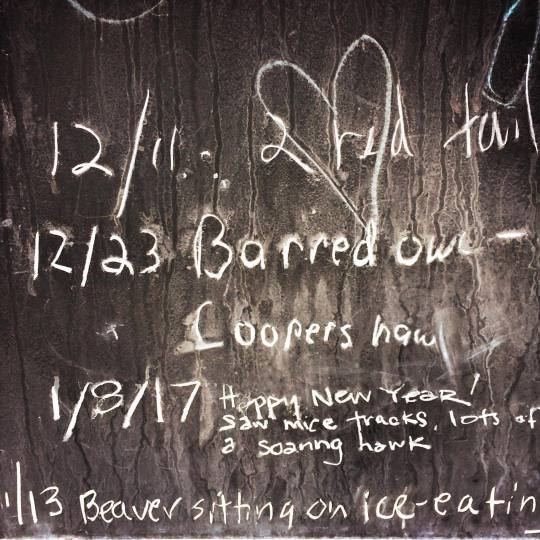 12/11: 2 red tail
12/23 Barred owl -
Coopers haw
1/8/17 Happy New Year!
saw mice tracks, lots of
a soaring hawk
1/13 Beaver sitting on ice-eatin